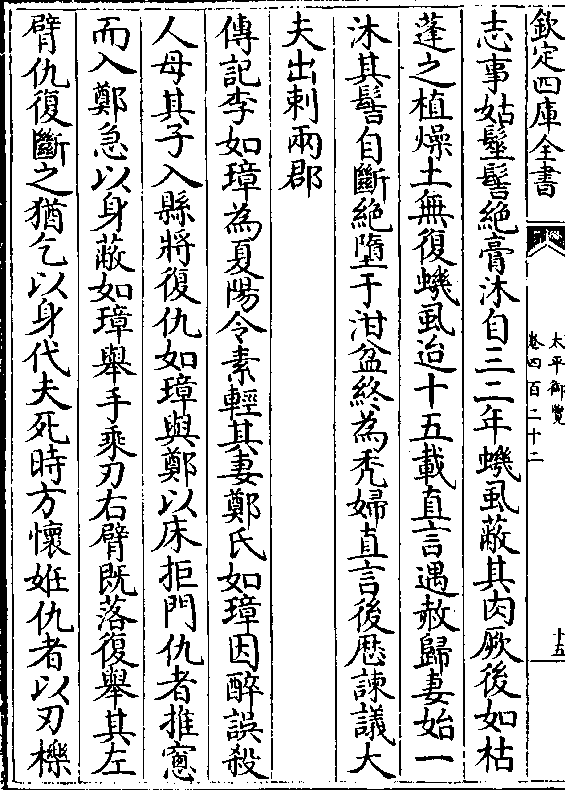 欽定四庫全書
太平御覽
卷四百二十二
十五
志事姑鬒髻絶膏沐自三二年蟣虱蔽其肉厥後如枯
蓬之植燥土無復蟣虱迨十五載直言遇赦歸妻始一
沐其髻自斷絶墮于泔盆終為秃婦直言後歴諌議大
夫出刺兩郡
傳記李如璋為夏陽令素輕其妻鄭氏如璋因醉誤殺
人母其子入縣將復仇如璋與鄭以床拒門仇者推窻
而入鄭急以身蔽如璋舉手乘刃右臂既落復舉其左
臂仇復斷之猶乞以身代夫死時方懷姙仇者以刃櫟